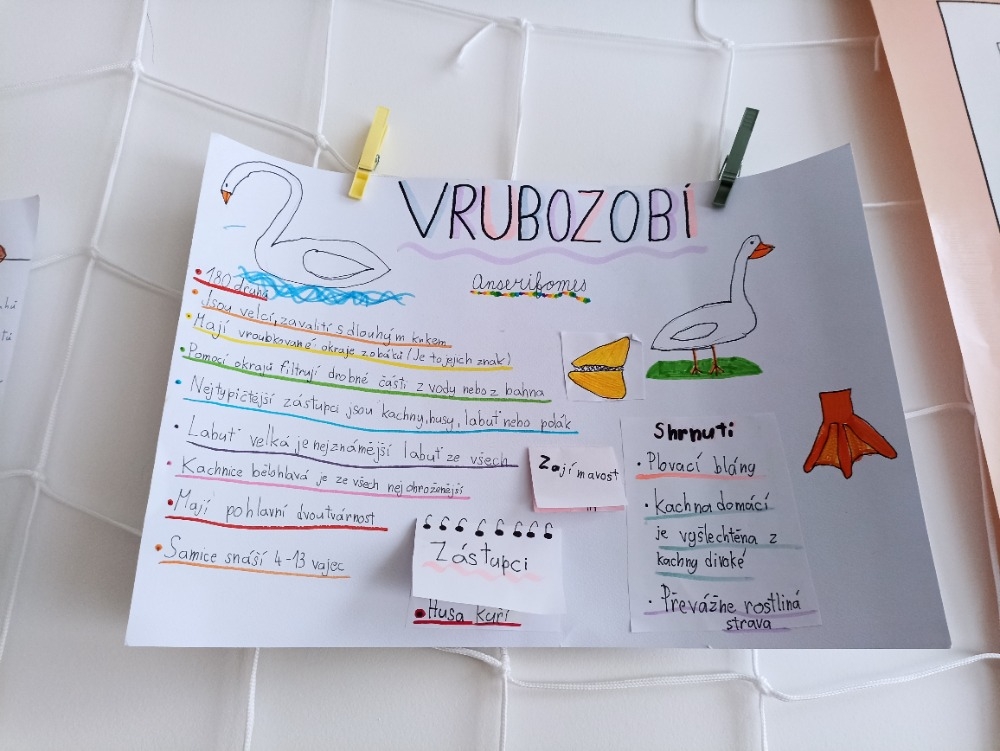 VRUBOZOBÍ
Anserifomes
• 180 druhů
• Jsou velcí, zavalití s dlouhým krkem
• Mají vroubkované okraje zobáků (Je to jejich znak)
• Pomocí okrajů filtrují drobné části z vody nebo z bahna
• Nejtypičtější zástupci jsou kachny, husy, labuť nebo polák
• Labuť velká je nejznámější labuť ze všech
• Kachnice bělohlavá je ze všech nejohroženější
• Mají pohlavní dvoutvárnost
• Samice snáší 4-13 vajec
Zajímavost
Zástupci
• Husa kuří
Shrnutí
• Plovací blány
• Kachna domácí
je vyšlechtěna z
kachny divoké
• Převážne rostliná
strava